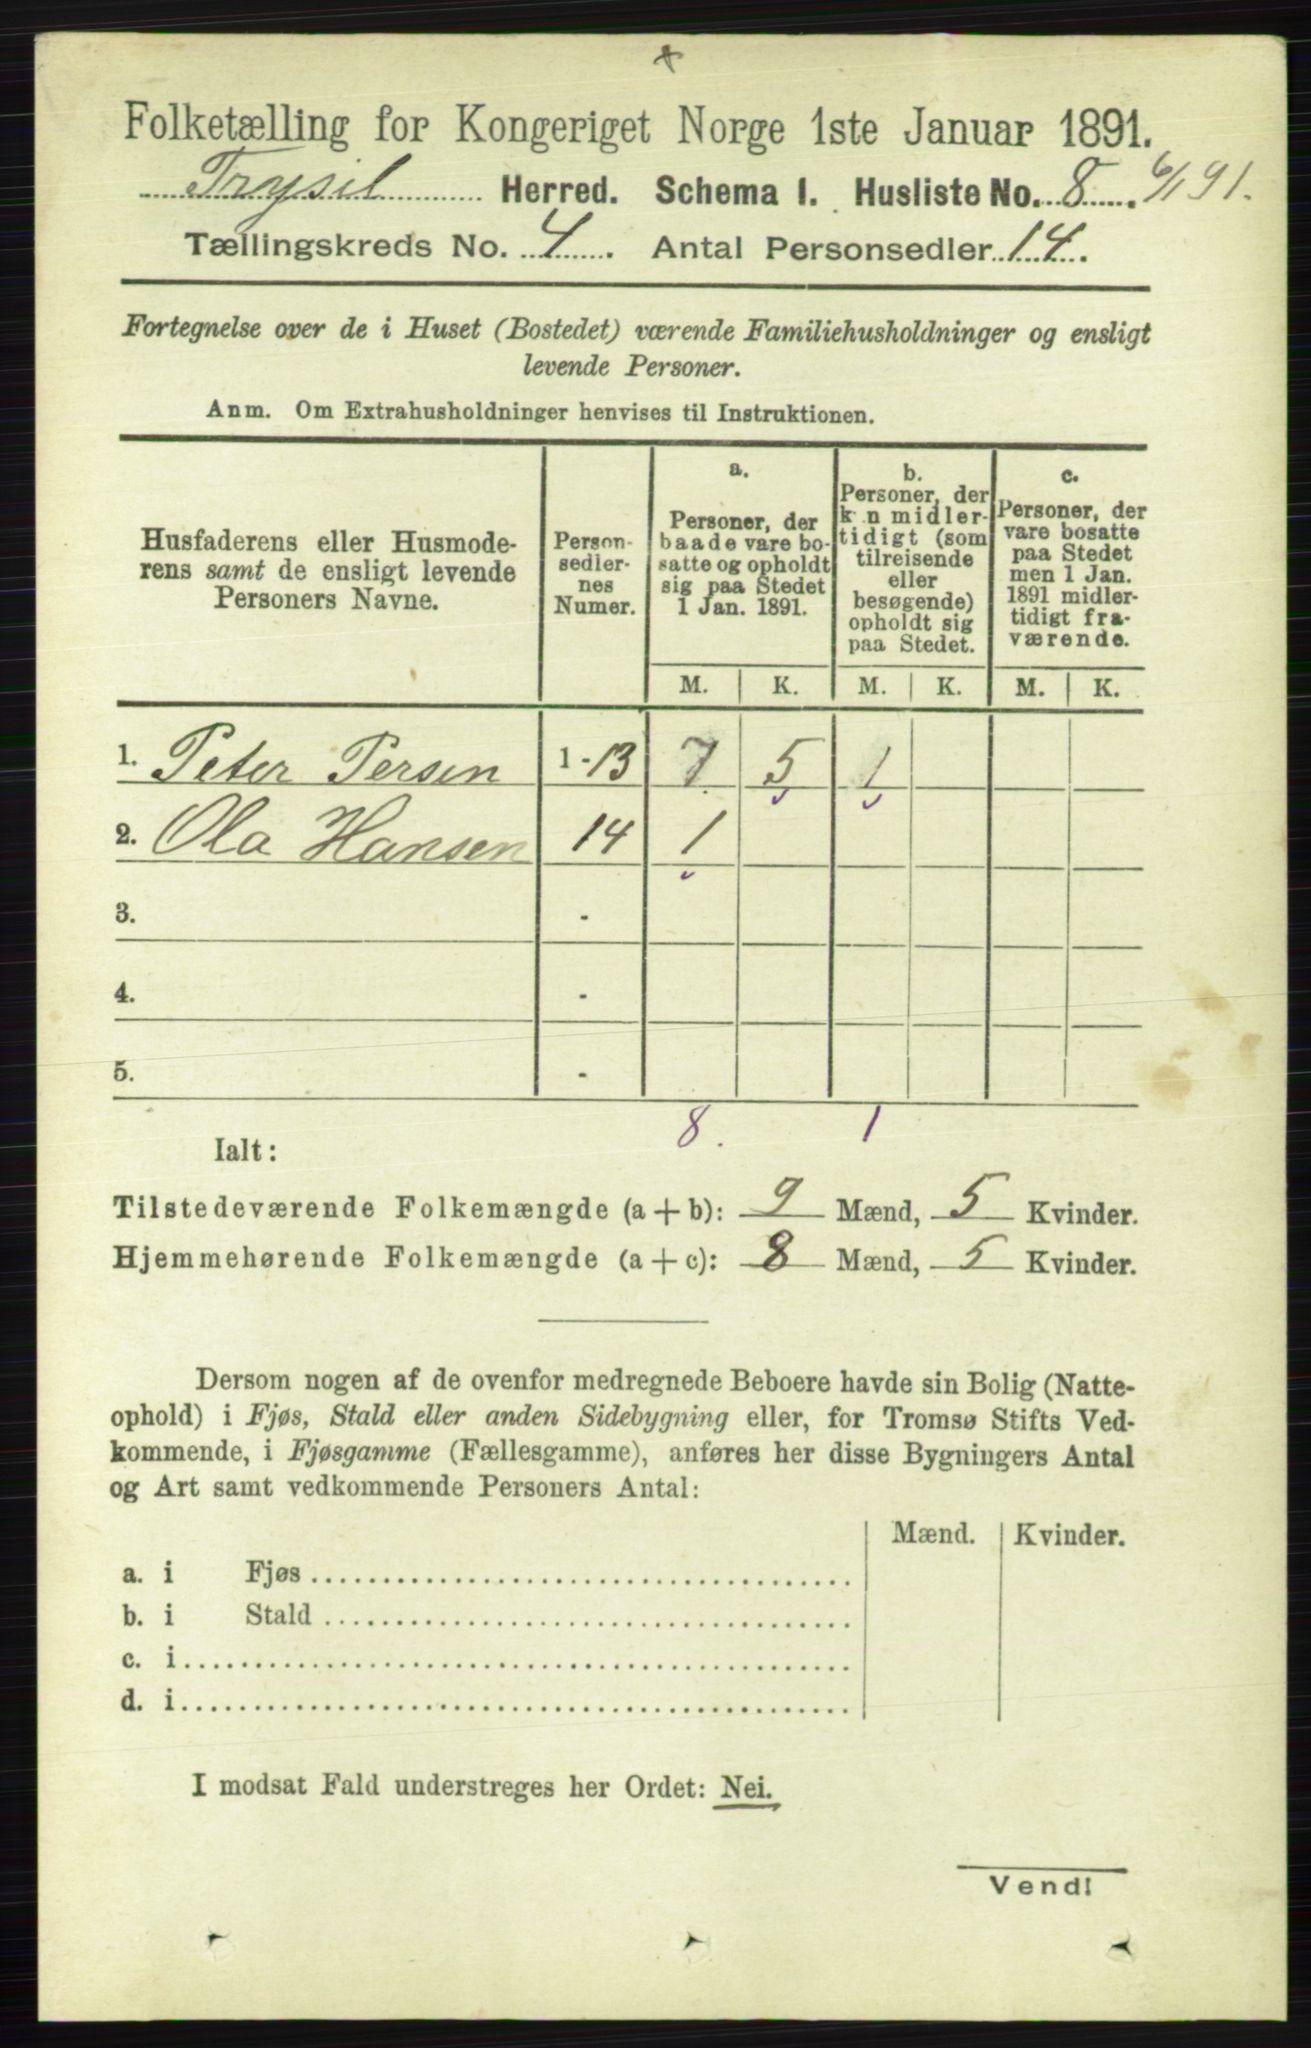 Folketælling for Kongeriget Norge 1ste Januar 1891.
Trysil Herred. Schema 1. Husliste No. 8. 6/1 91.
Tællingskreds No. 4. Antal Personsedler 14.
Fortegnelse over de i Huset (Bostedet) værende Familiehusholdninger og ensligt
levende Personer.
Anm. Om Extrahusholdninger henvises til Instruktionen.
Husfaderens eller Husmode-
rens samt de ensligt levende
Personers Navne.
Person-
sedler-
nes
Numer.
a.
Personer, der
baade vare bo-
satte og opholdt
sig paa Stedet
1 Jan. 1891.
b.
Personer, der
k n midler-
tidigt (som
tilreisende
eller
besøgende)
opholdt sig
paa Stedet.
c.
Personer, der
vare bosatte
paa Stedet
men 1 Jan.
1891 midler-
tidigt fra-
værende.
M. K. M. K. M. K.
1. Peter Persen 1 - 13 7 5 1
2. Ola Hansen 14 1
3. -
4. -
5. -
8. 1
Ialt:
Tilstedeværende Folkemængde (a + b): 9 Mænd, 5 Kvinder.
Hjemmehørende Folkemængde (a + c): 8 Mænd, 5 Kvinder.
Dersom nogen af de ovenfor medregnede Beboere havde sin Bolig (Natte-
ophold) i Fjøs, Stald eller anden Sidebygning eller, for Tromsø Stifts Ved-
kommende, i Fjøsgamme (Fællesgamme), anføres her disse Bygningers Antal
og Art samt vedkommende Personers Antal:
Mænd. Kvinder.
a. i Fjøs
b. i Stald
c. i
d. i
I modsat Fald understreges her Ordet: Nei.
Vend!